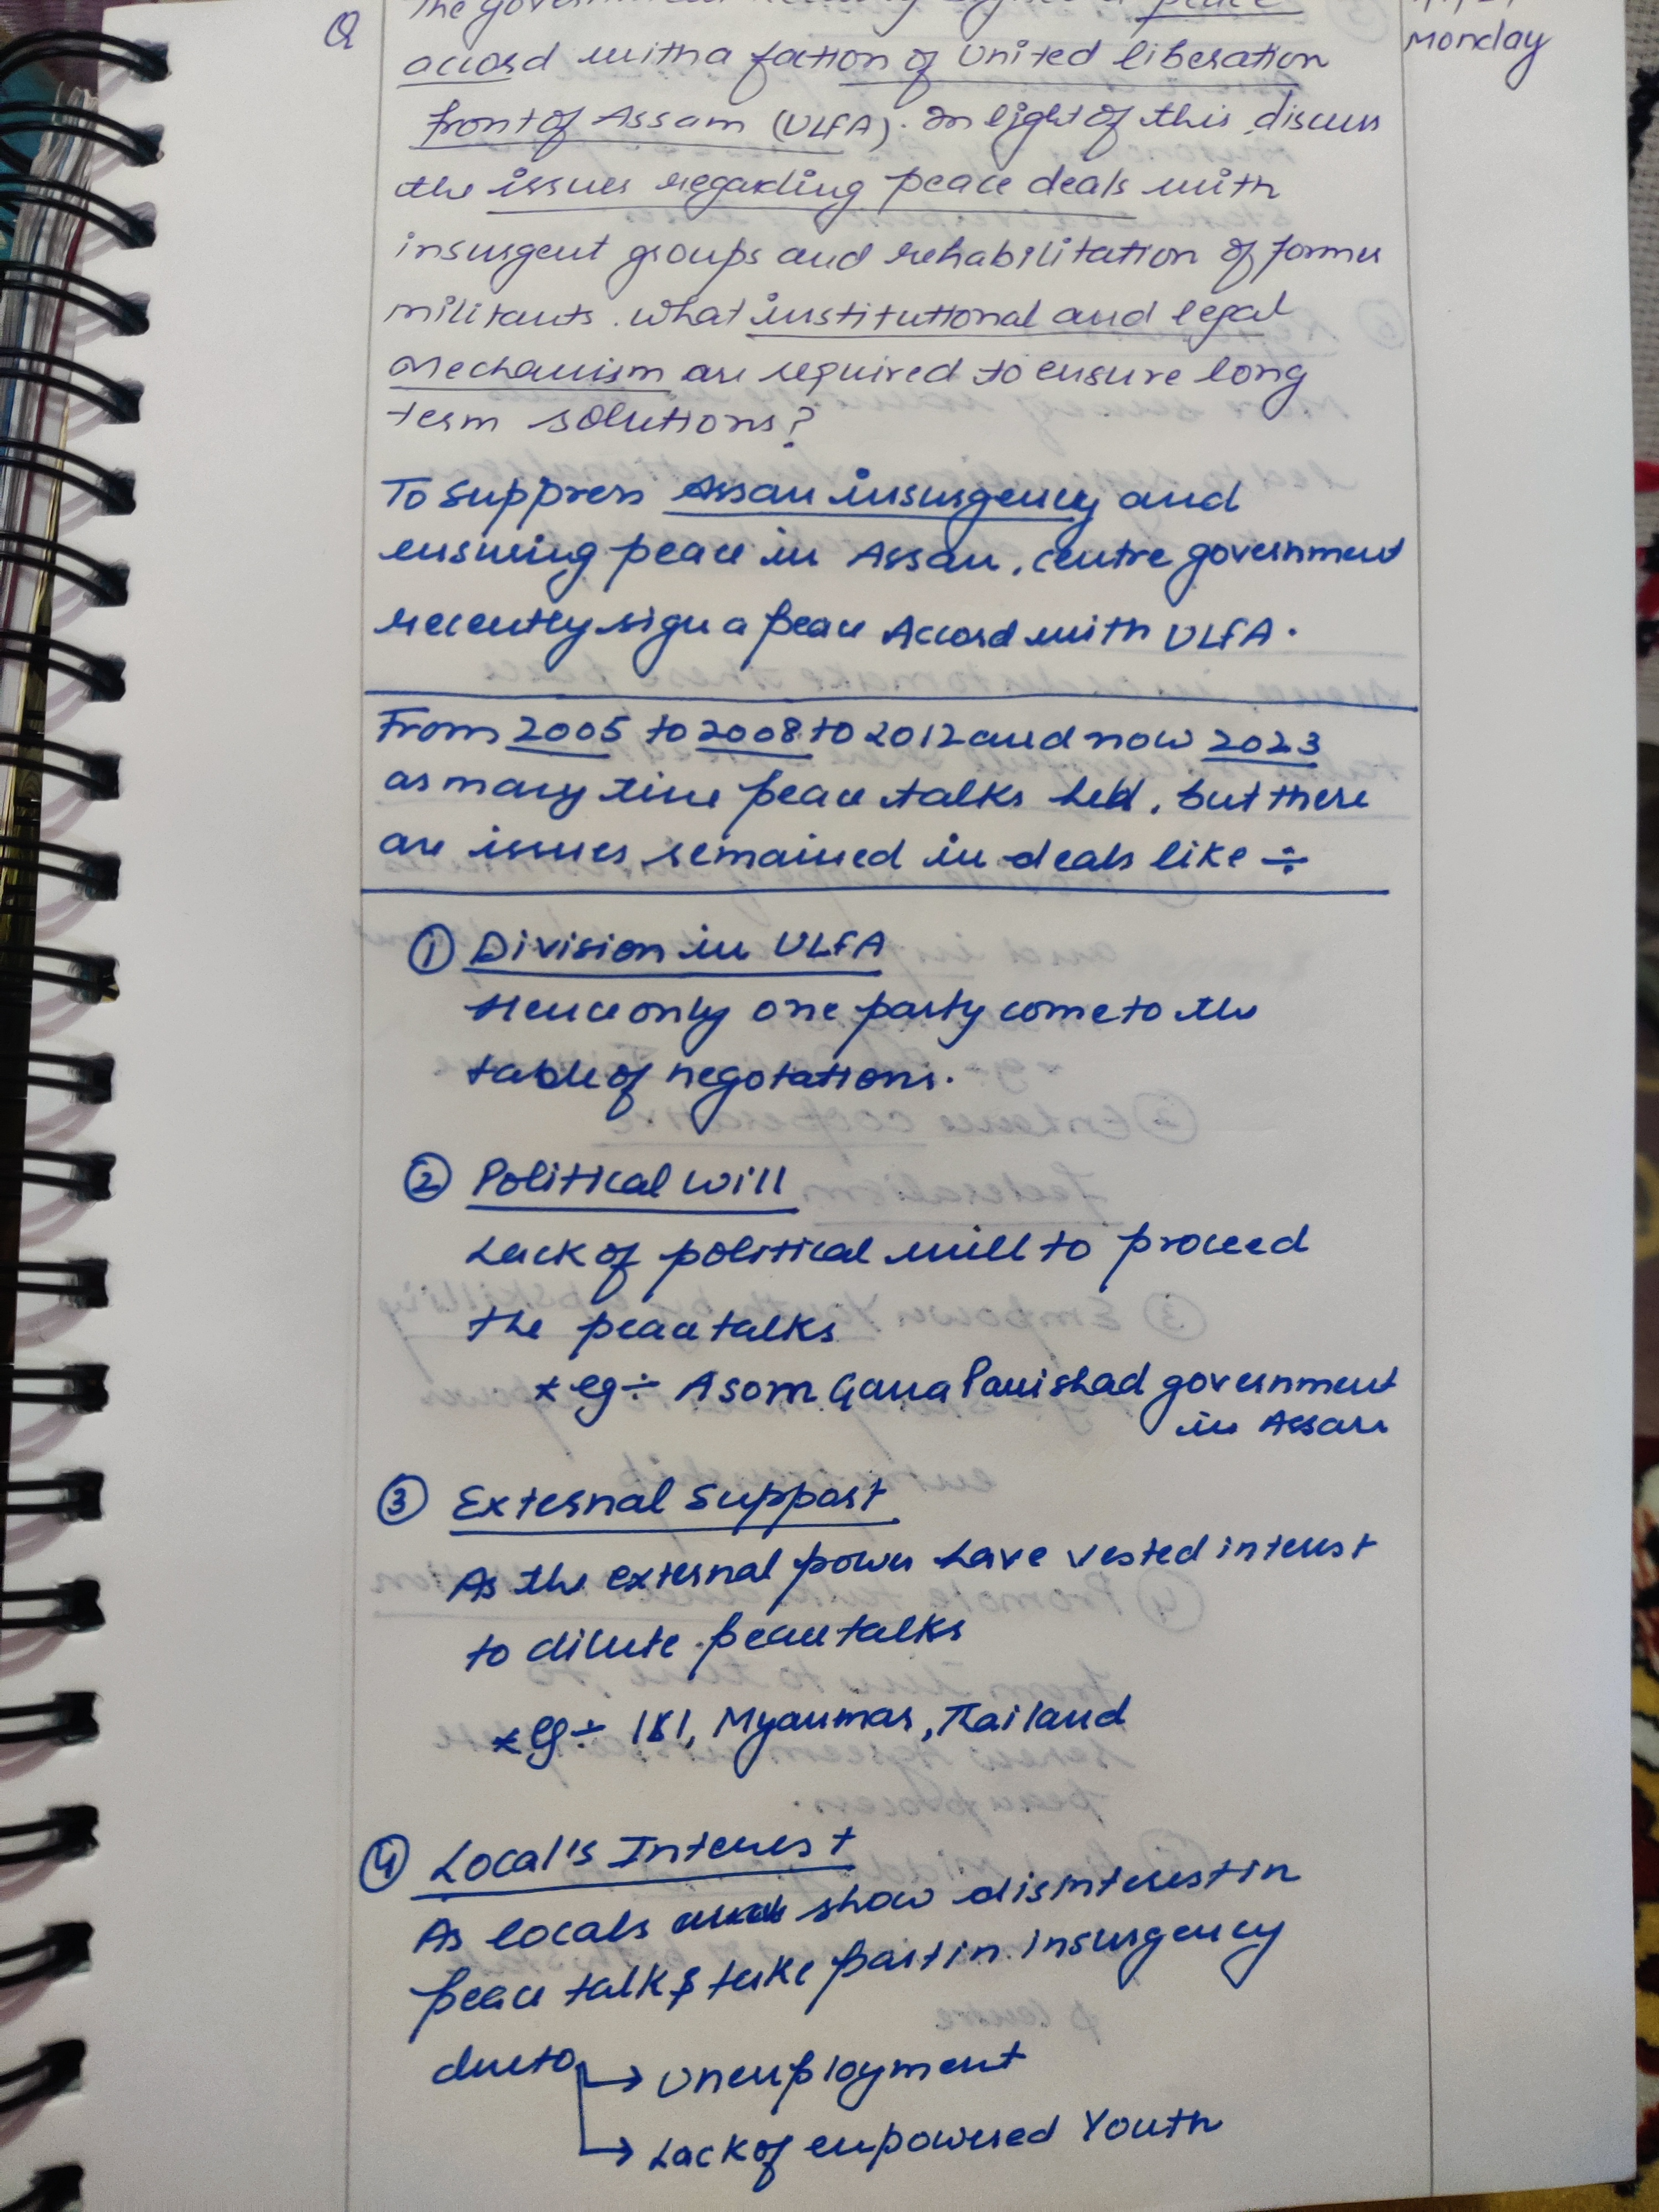 Q
the government recently signed a peace
Monday
accord with a faction of United liberation
front of Assam (ULFA). In light of this, discuss
the issues regarding peace deals with
insurgent groups and rehabilitation of former
militants. what institutional and legal
mechanism are required to ensure long
term solutions?
To suppress Assam insurgency and
ensuring peace in Assam, centre government
recently sign a peace Accord with ULFA.
From 2005 to 2008 to 2012 and now 2023
as many time peace talks held, but there
are issues remained in deals like ÷
① Division in ULFA
Hence only one party come to the
table of negotations.
② Political will
Lack of political will to proceed
the peace talks
* eg ÷ Asom Gana Parishad government
in Assam
③ External Support
As the external power have vested interest
to dilute peace talks
* eg ÷ ISI, Myanmar, Thailand
④ Local's Interest
As locals show disinterest in
peace talks & take part in insurgency
due to
→ Unemployment
→ Lack of empowered Youth